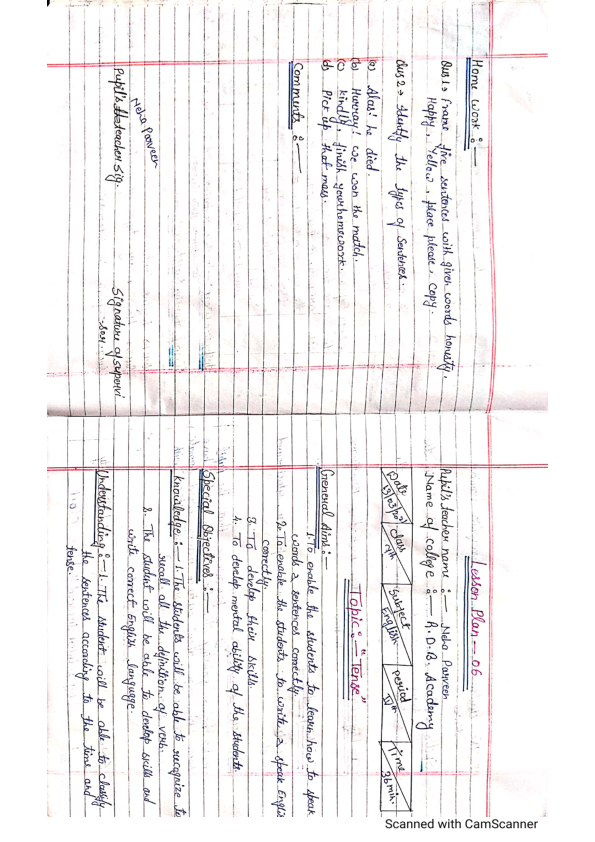 Home Work :—
Ques 1 → Frame five sentences with given words honesty,
Happy, Yellow, place please, copy.
Ques 2 → Identify the types of Sentences.
(a) Alas! he died.
(b) Hurray! we won the match.
(c) kindly, finish your homework.
(d) Pick up that mess.
Comments :—
Neha Parveen
Pupil's teacher sig.
Signature of supervi
sor.
Lesson Plan — 06
Pupil's teacher name :— Neha Parveen
Name of college :— R.D.B. Academy
Date class Subject Period Time
7th English IVth 36 min.
Topic :— "Tense"
General Aims :—
1. To enable the students to learn how to speak
words & sentences correctly.
2. To enable the students to write & speak English
correctly.
3. To develop their skills
4. To develop mental ability of the students.
Special Objectives :—
knowledge :— 1. The students will be able to recognize to
recall all the definition of verb.
2. The student will be able to develop skills and
write correct English language.
Understanding :— 1. The student will be able to classify
the sentences according to the time and
tense.
Scanned with CamScanner